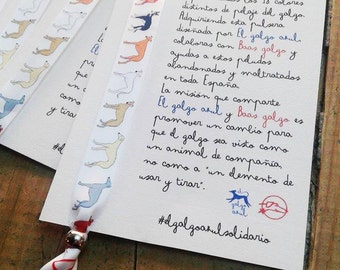 los 18 colores
distintos de pelaje del galgo.
Adquiriendo esta pulsera
diseñada por El galgo azul,
colaboras con Baas galgo y
ayudas a estos peludos
abandonados y maltratados
en toda España.
La misión que comparte
El galgo azul y Baas galgo es
promover un cambio para
que el galgo sea visto como
un animal de compañía,
no como a "un elemento de
usar y tirar".
el galgo azul
#elgalgoazulsolidario